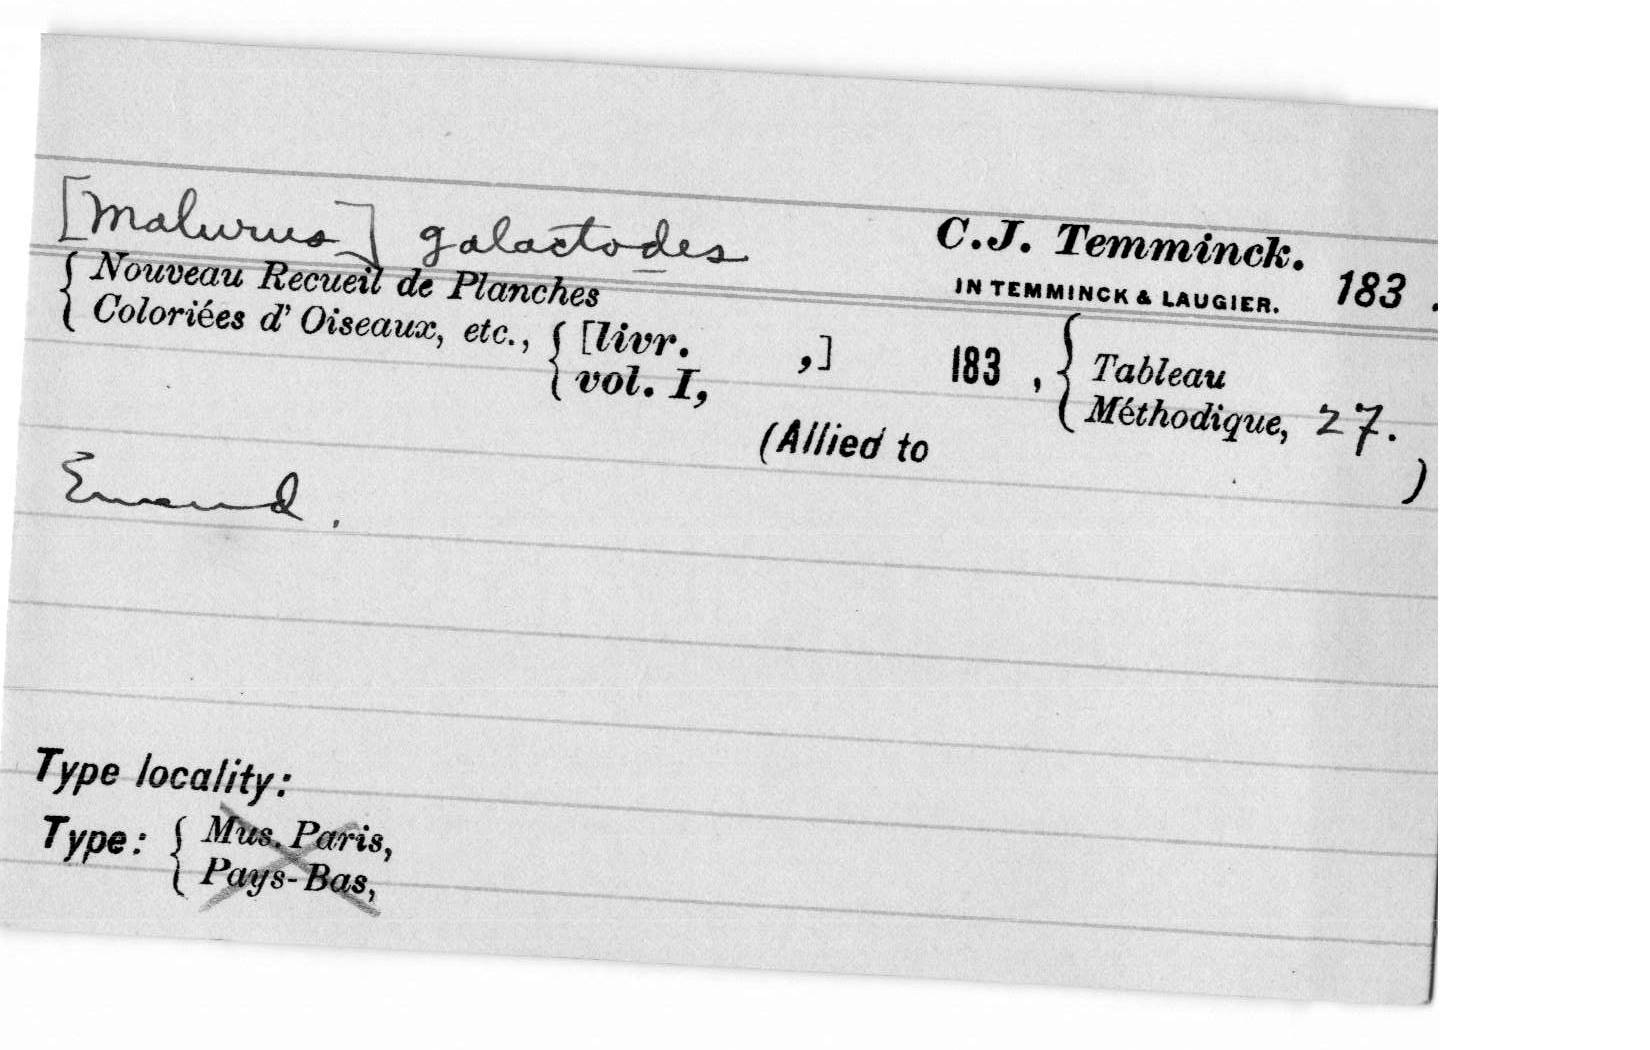 [Malurus] galactodes C.J. Temminck.
IN TEMMINCK & LAUGIER. 183 .
{ Nouveau Recueil de Planches
Coloriées d' Oiseaux, etc., { [livr. ,] 183 , { Tableau
vol. I, Méthodique, 27.
(Allied to )
Emend.
Type locality:
Type: { Mus. Paris,
Pays-Bas,